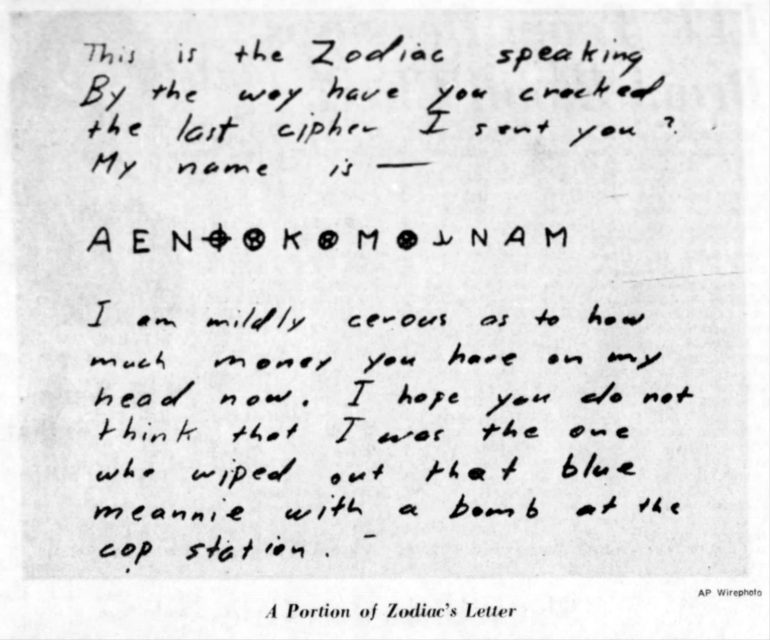 This is the Zodiac speaking
By the way have you cracked
the last cipher I sent you?
My name is —
A E N ⌖ ⊗ K ⊗ M ⊗ ⅄ N A M
I am mildly cerous as to how
much money you have on my
head now. I hope you do not
think that I was the one
who wiped out that blue
meannie with a bomb at the
cop station. –
AP Wirephoto
A Portion of Zodiac's Letter